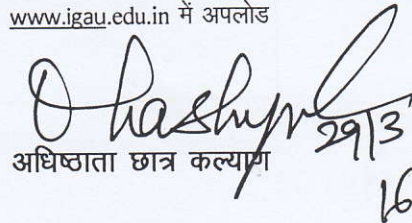 www.igau.edu.in में अपलोड
29/3
अधिष्ठाता छात्र कल्याण
16